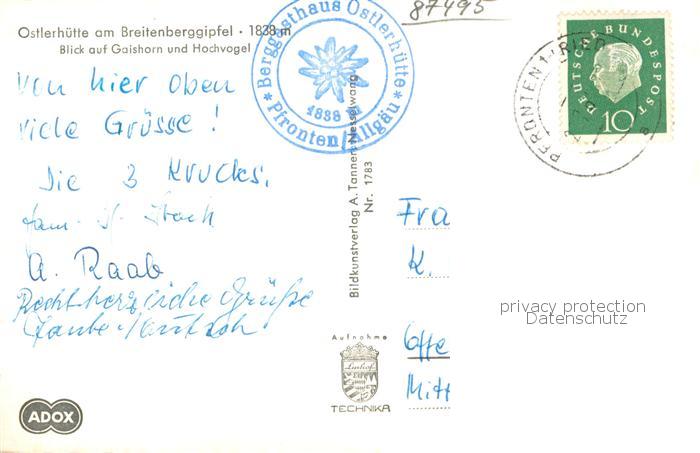 Ostlerhütte am Breitenberggipfel · 1838 m
Blick auf Gaishorn und Hochvogel
Von hier oben
viele Grüsse!
Die 3 Krucks.
Fam.
A. Raab
Recht herzliche Grüße
87495
* Berggasthaus Ostlerhütte *
1838 m
Pfronten/Allgäu
DEUTSCHE BUNDESPOST
10
PFRONTEN 1-RIED
Bildkunstverlag A. Tanner, Nesselwang
Nr. 1783
Fra
K.
Offe
Mitt
privacy protection
Datenschutz
Aufnahme
Linhof
TECHNIKA
ADOX